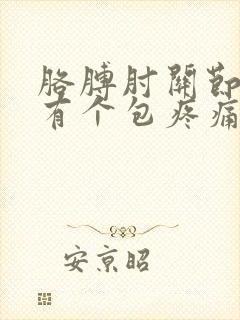 胳膊肘關節
有个包疼痛
安京昭